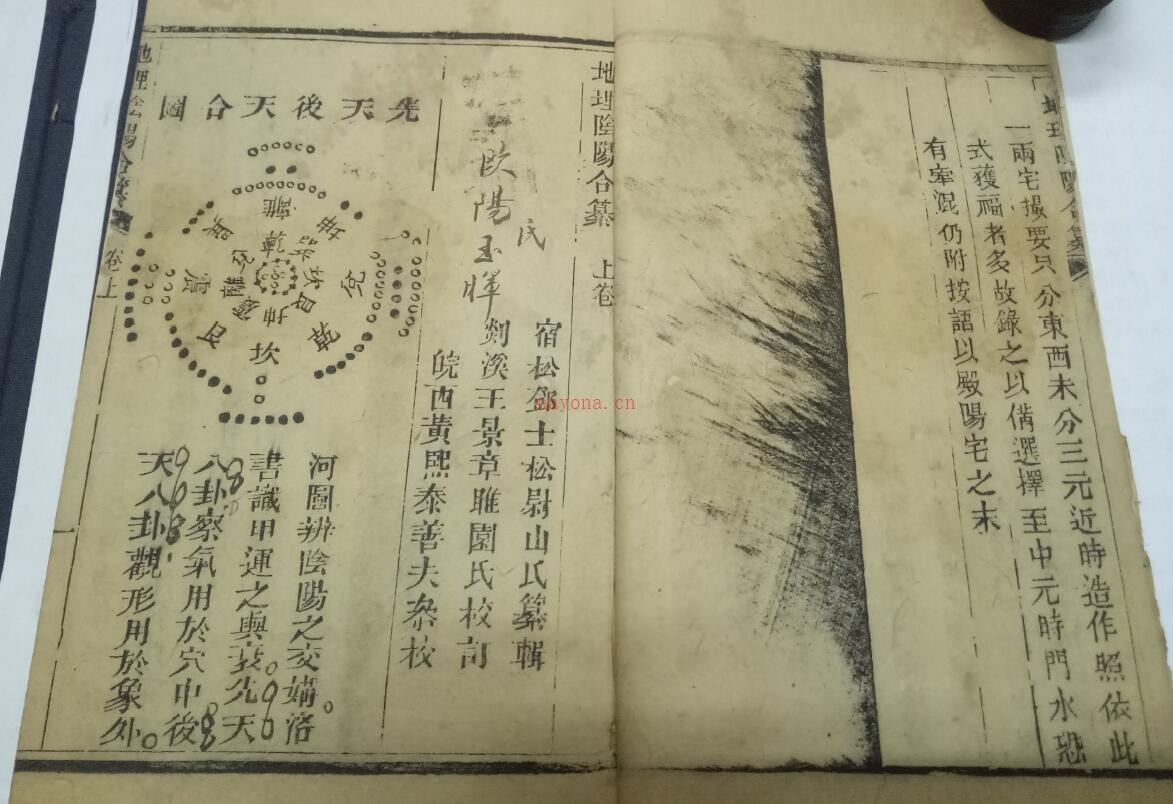 地理陰陽合纂
一兩宅撮要只分東西未分三元近時造作照依此
式獲福者多故錄之以備選擇至中元時門水恐
有牽混仍附按語以殿陽宅之末
地理陰陽合纂 上卷
宿松鄧士松尉山氏纂輯
剡溪王景章雎園氏校訂
皖西黃熙泰善夫叅校
歐陽玉暉
氏
先天後天合圖
離
坤
兌
乾
坎
艮
震
巽
乾
巽
坎
艮
坤
震
離
兌
河圖辨陰陽之交媾。洛
書識甲運之興衰。先天
八卦察氣用於穴中。後
天八卦觀形用於象外。
地理陰陽合纂 卷上